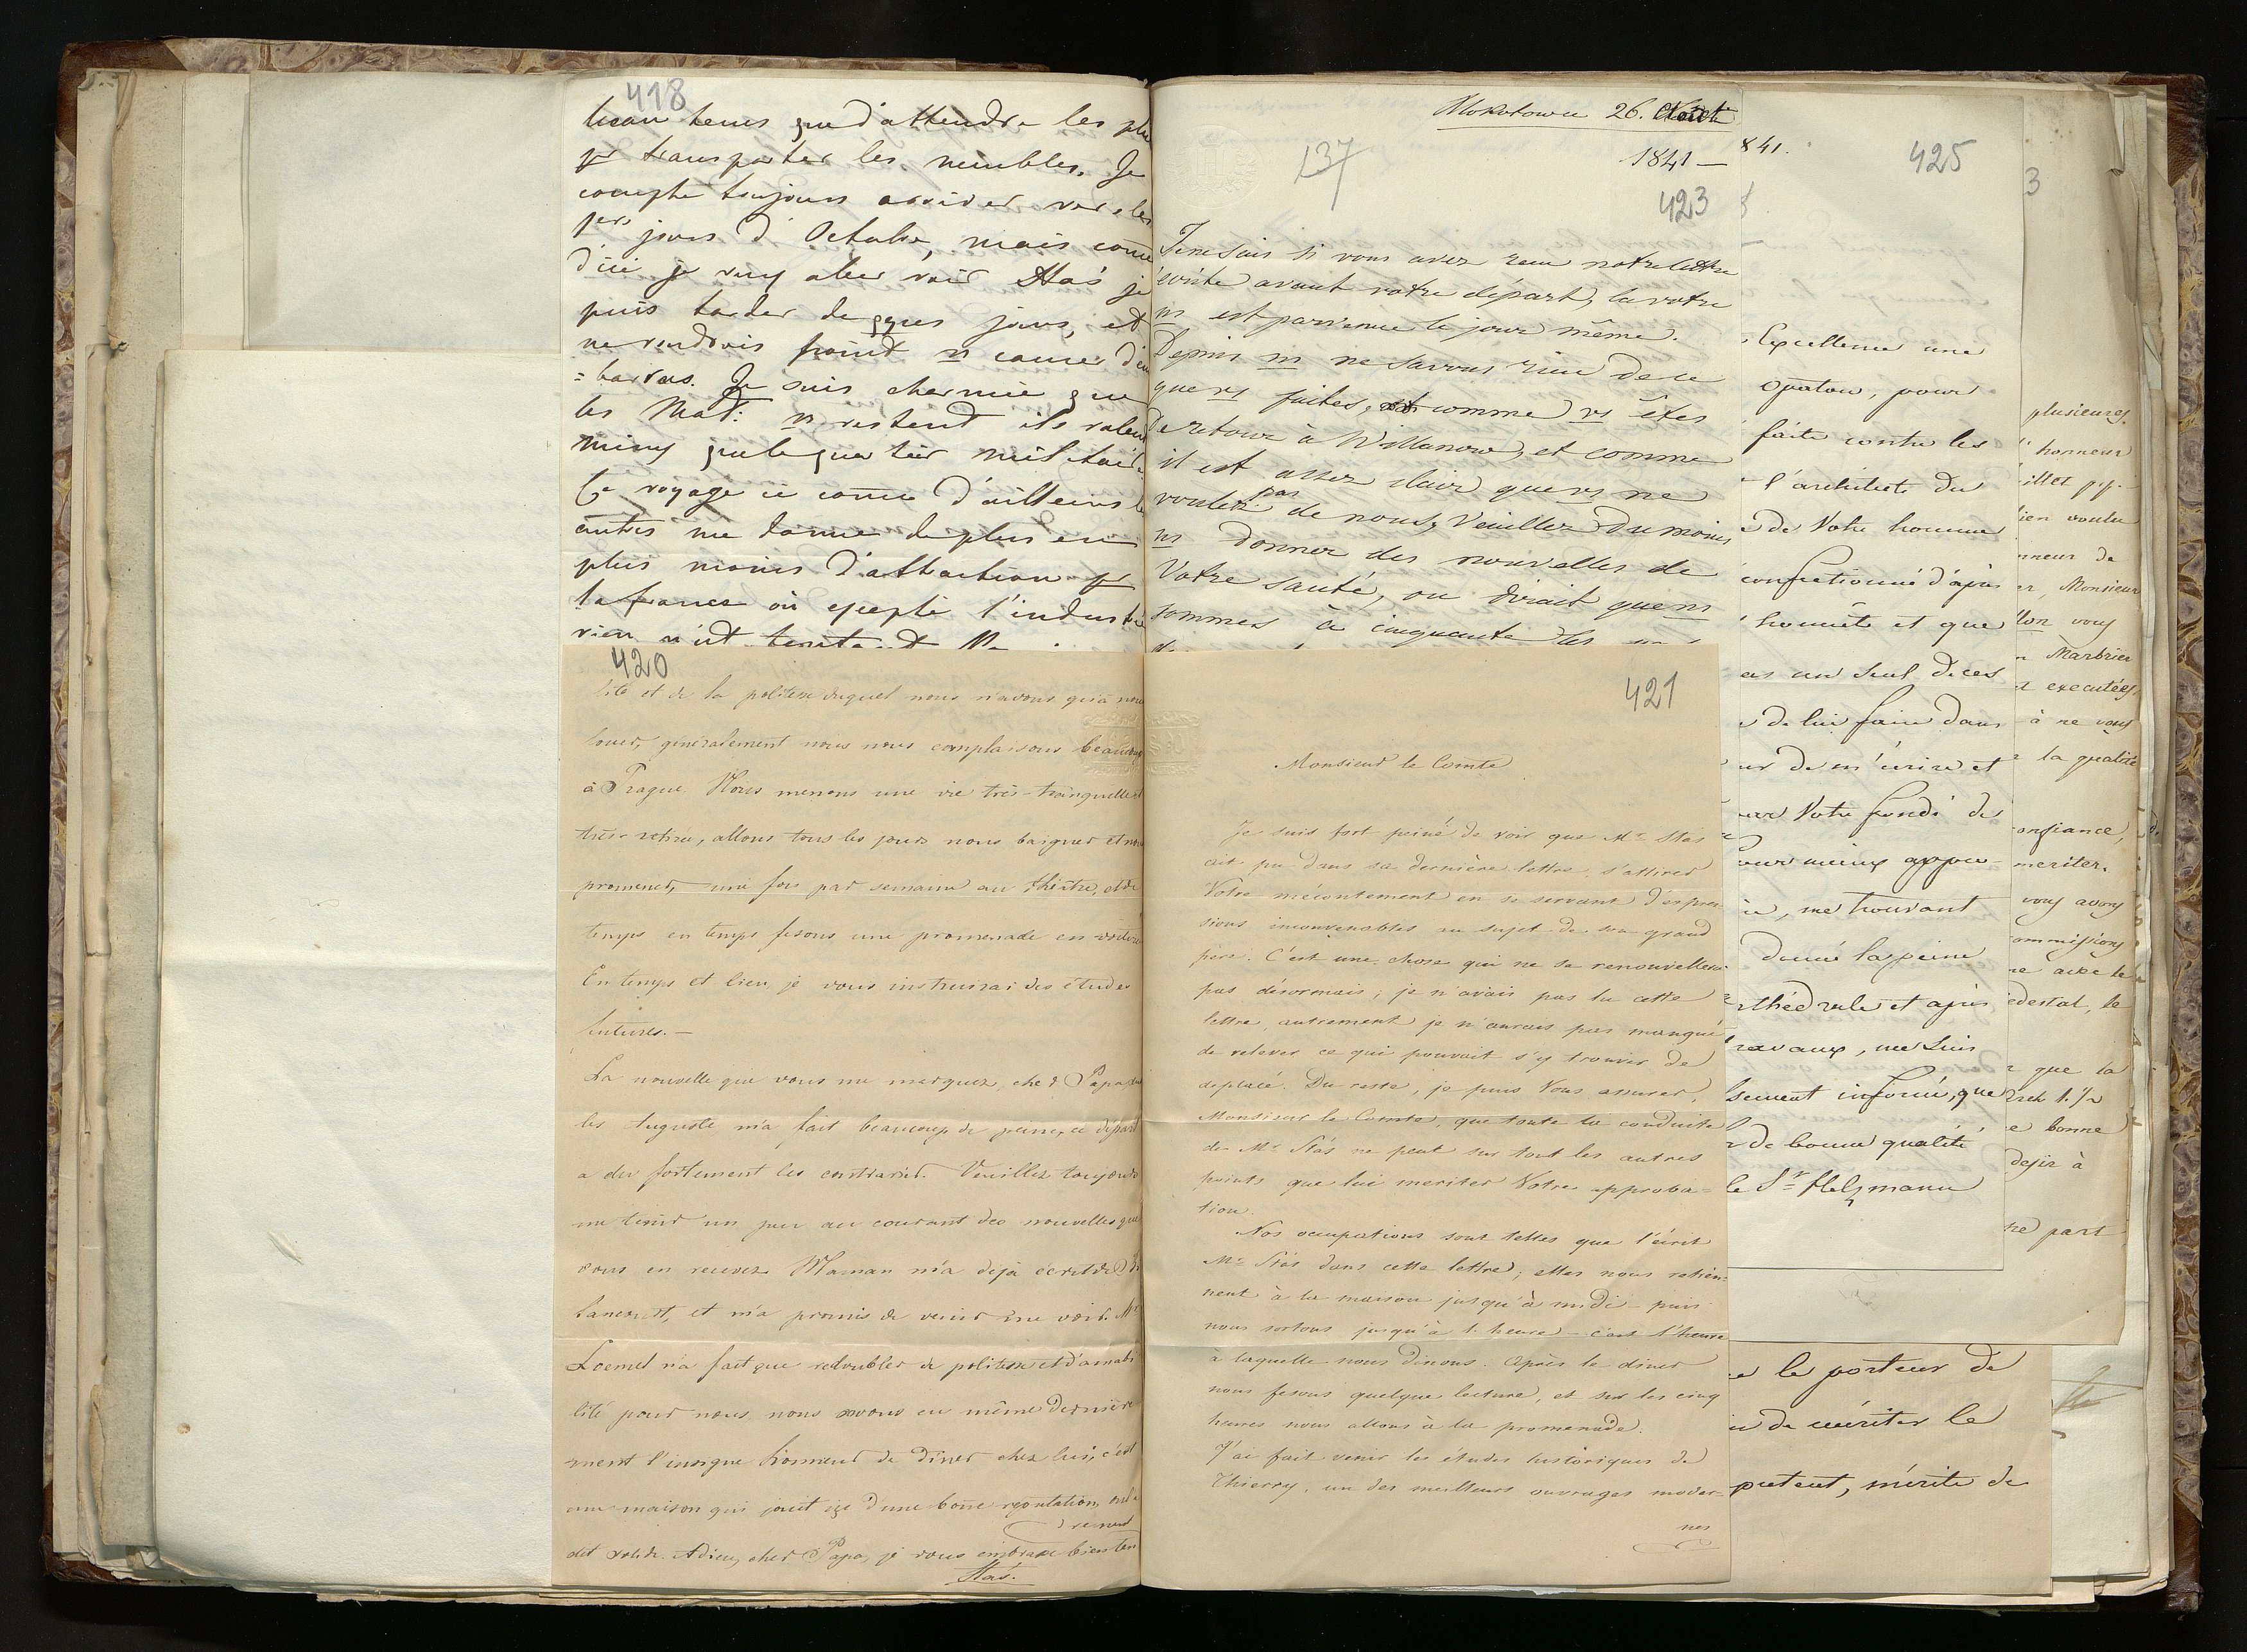 418
beau tems que d'attendre les
pr transporter les meubles. Je
compte toujours arriver vers les
jours d'Octobre, mais come
d'ici je veux aller voir Stás je
puis tarder de qques jours, et
ne voudrais point
=barras. Je suis charmée que
les Mad:
mieux
Ce voyage ci come d'ailleurs
autres me donne de plus en
plus moins d'attraction pr
la france où excepté l'industrie
rien n'est
420
lité et de la politesse duquel nous n'avons qu'à nous
louer, généralement nous nous complaisons beaucoup
à Prague. Nous menons une vie très-tranquille et
très-retirée, allons tous les jours nous baigner et nous
promener, une fois par semaine au théâtre, et de
temps en temps fesons une promenade en voiture
En temps et lieu, je vous instruirai des études
futures.—
La nouvelle que vous me marquez, cher Papa, sur
les Auguste m'a fait beaucoup de peine, ce départ
a du fortement les contrarier. Veuillez toujours
me tenir un peu au courant des nouvelles que
vous en recevez. Maman m'a déjà écrit de
Lancut, et m'a promis de venir me voir. Mr
Loemel n'a fait que redoubler de politesse et d'amabi
lité pour nous, nous avons eu même dernière
ment l'insigne honneur de diner chez lui, c'est
une maison qui jouit ici d'une bonne reputation, on la
dit solide. Adieu, cher Papa, je vous embrasse bien ten
drement
Stás.
Mokotowie 26. Août
1841 —
137
423
Je ne sais si vous avez reçu notre lettre
écrite avant votre départ, la votre
ns est parvenue le jour même.
Depuis ns ne savons rien de ce
que vs faites, et comme vs êtes
de retour à Willanow, et comme
il est assez clair que vs ne
voulez pas de nous, Veuillez du moins
ns donner des nouvelles de
Votre santé, on dirait que ns
sommes à cinquante
421
Monsieur le Comte
Je suis fort peiné de voir que Mr Stás
ait pu dans sa dernière lettre s'attirer
Votre mécontentement en se servant d'expres-
sions inconvenables au sujet de son grand
père. C'est une chose qui ne se renouvellera
pas désormais; je n'avais pas lu cette
lettre, autrement je n'aurais pas manqué
de relever ce qui pouvait s'y trouver de
deplacé. Du reste, je puis Vous assurer,
Monsieur le Comte, que toute la conduite
de Mr Stás ne peut sur tout les autres
points que lui meriter Votre approba=
tion.
Nos occupations sont telles que l'écrit
Mr Stás dans cette lettre; elles nous retien-
nent à la maison jusqu'à midi — puis
nous sortons jusqu'à 1. heure — c'est l'heure
à laquelle nous dinons. Après le diner
nous fesons quelque lecture, et sur les cinq
heures nous allons à la promenade.
J'ai fait venir les études historiques de
Thierry, un des meilleurs ouvrages moder-
nes
841.
425
Excellence une
pour
faite contre les
l'architecte du
de Votre homme
confectionné d'après
honnête et que
un seul de ces
de lui faire dans
de m'écrire et
Votre fondé de
mieux
me trouvant
donné la peine
thédrale et après
ravaux, me suis
sement informé, que
de bonne qualité
le Sr
le porteur de
de mériter le
mérite de
3
plusieures
honneur
voulu
neur de
Monsieur
vous
Marbrier
executées
à ne vous
la qualité
onfiance,
meriter.
vous avons
ommissions
avec le
edestal, le
que la
bonne
dejà à
part